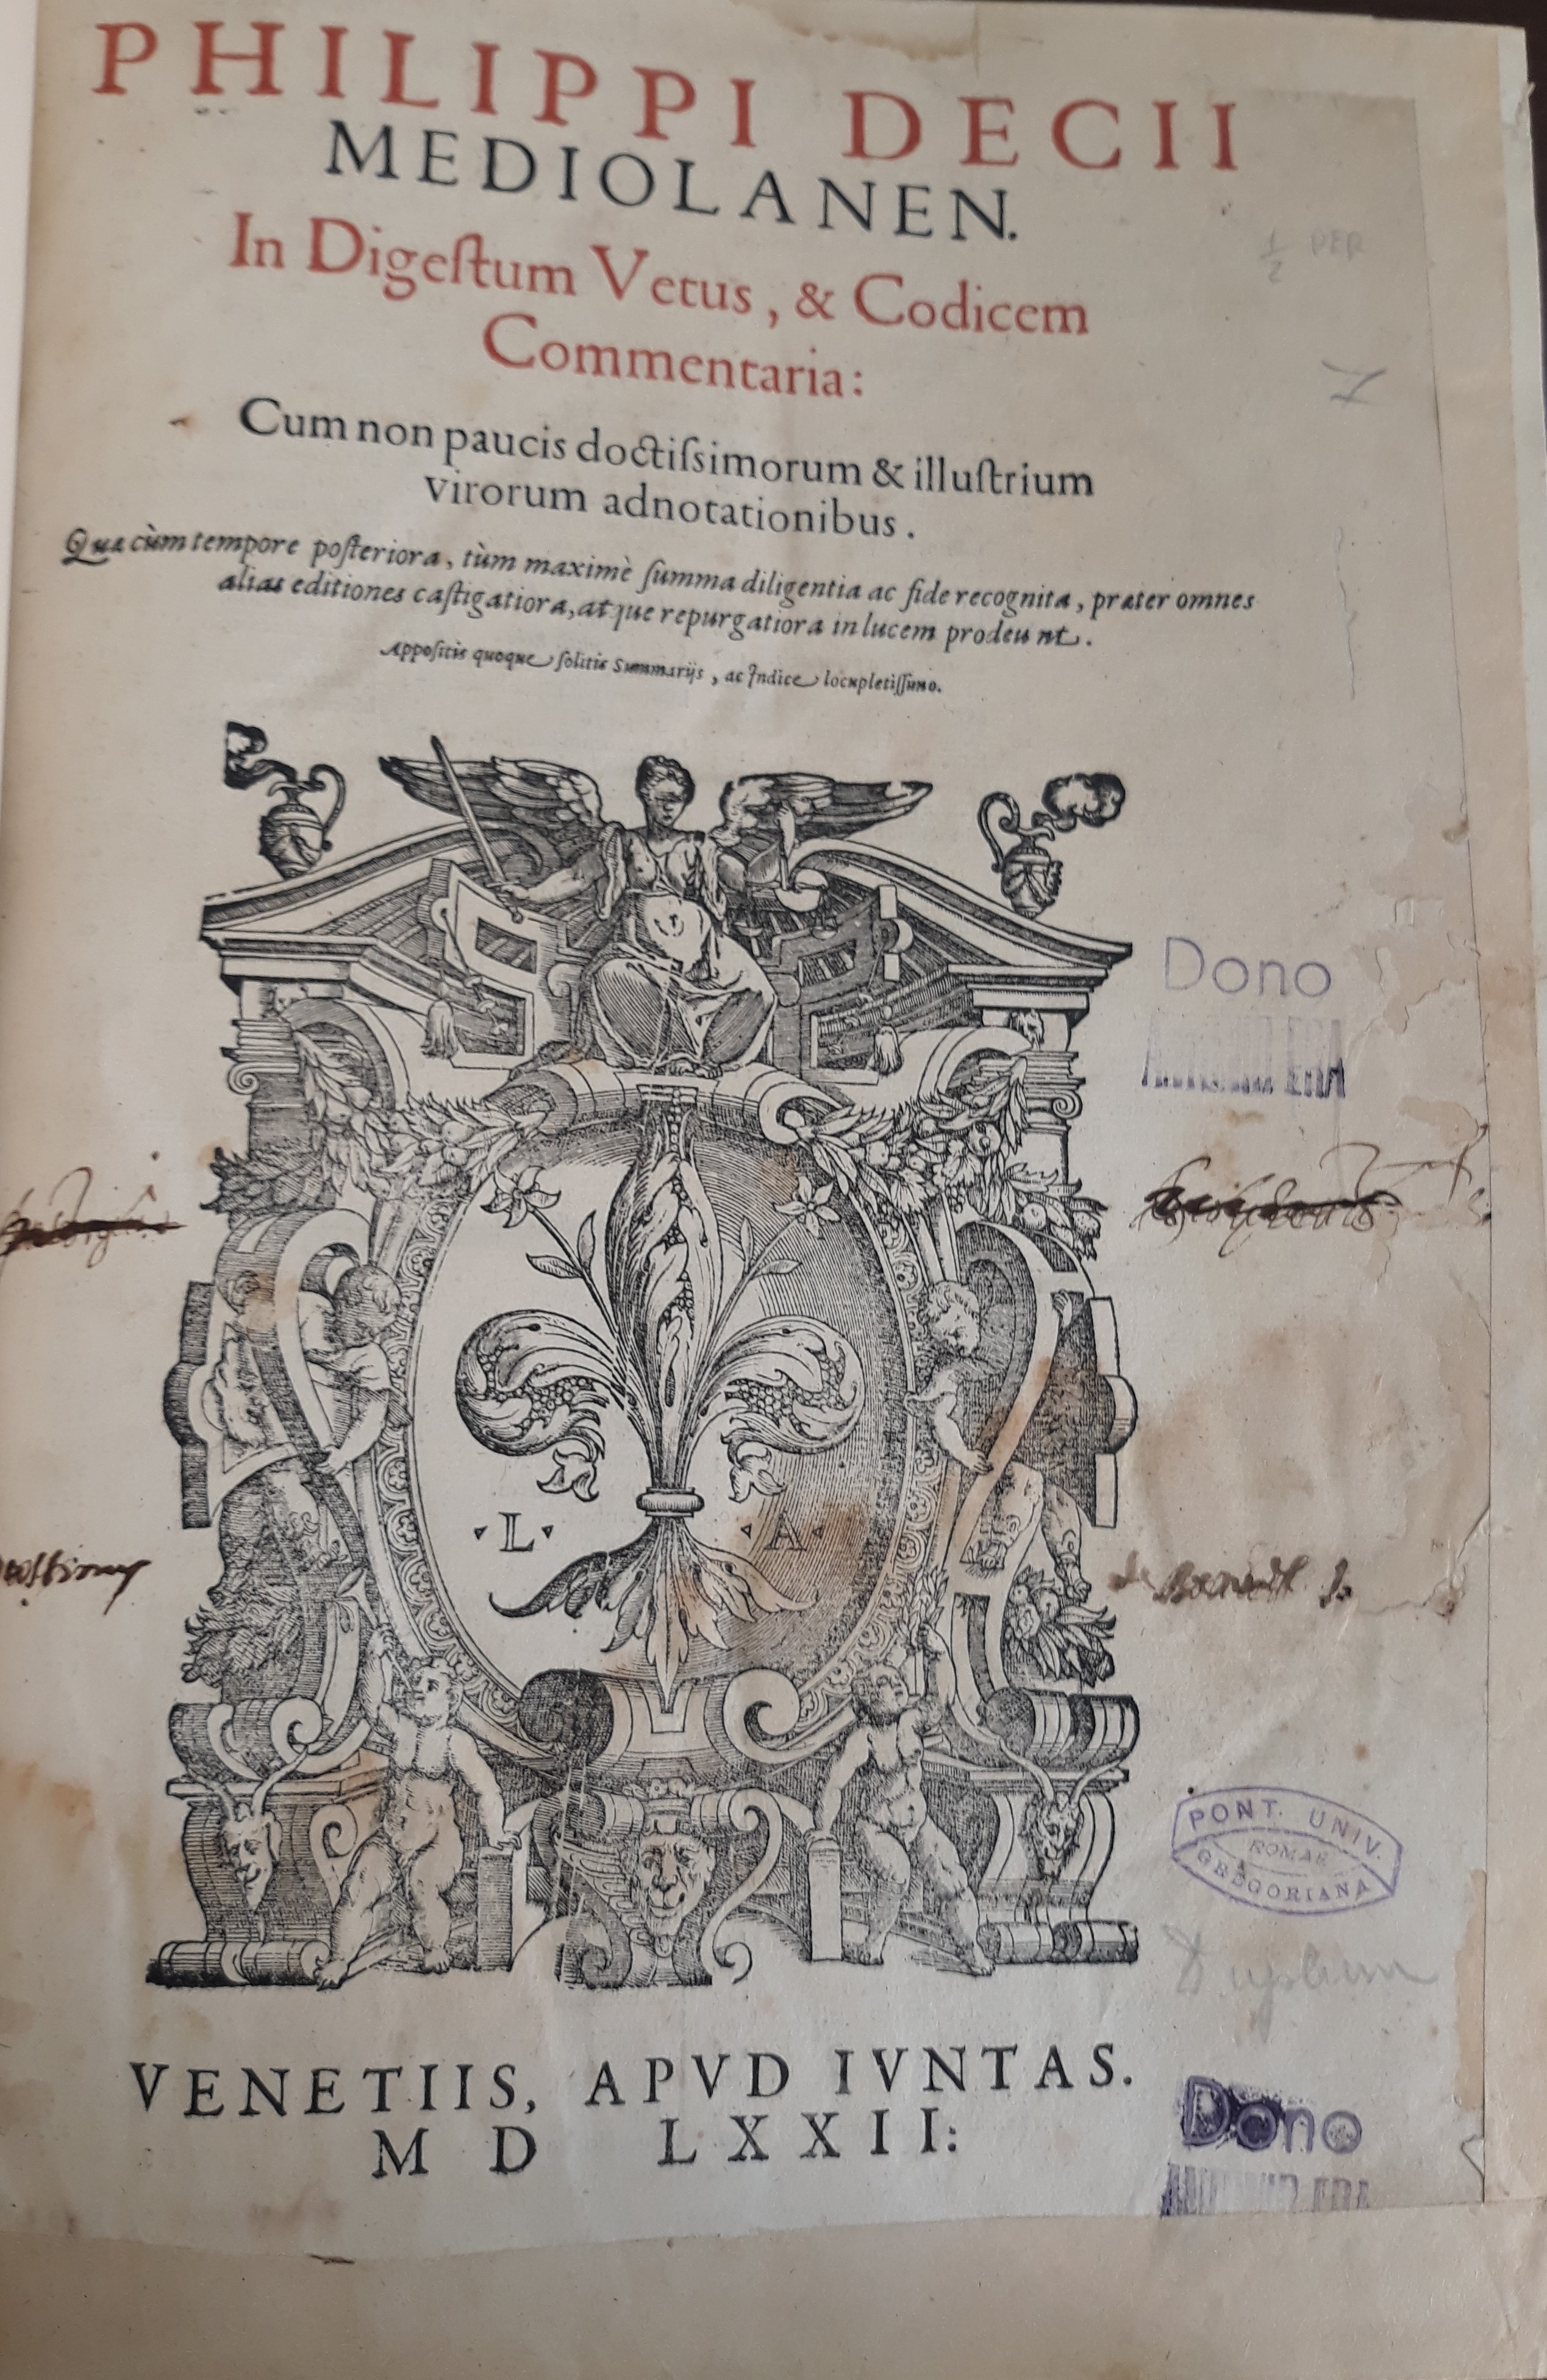 PHILIPPI DECII
MEDIOLANEN.
In Digeſtum Vetus, & Codicem
Commentaria:
Cum non paucis doctiſsimorum & illuſtrium
virorum adnotationibus.
Quæ cùm tempore poſteriora, tùm maximè ſumma diligentia ac fide recognita, præter omnes
alias editiones caſtigatiora, atque repurgatiora in lucem prodeunt.
Appoſitis quoque ſolitis Summarijs, ac Indice locupletiſſimo.
1/2 PER
7
Dono
ERA
·L· ·A·
PONT. UNIV.
ROMAE
GREGORIANA
Duplum
VENETIIS, APVD IVNTAS.
M D LXXII:
Dono
ERA